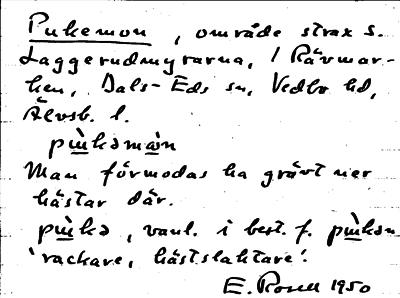 Pukemon, område strax S.
Laggerudmyrarna, i Rävmar-
ken, Dals-Eds sn, Vedbo hd,
Älvsb. l.
pùkəmòn
Man förmodas ha grävt ner
hästar där.
pùkə, vanl. i best. f. pùkən
'rackare, hästslaktare'.
E. Rosell 1950